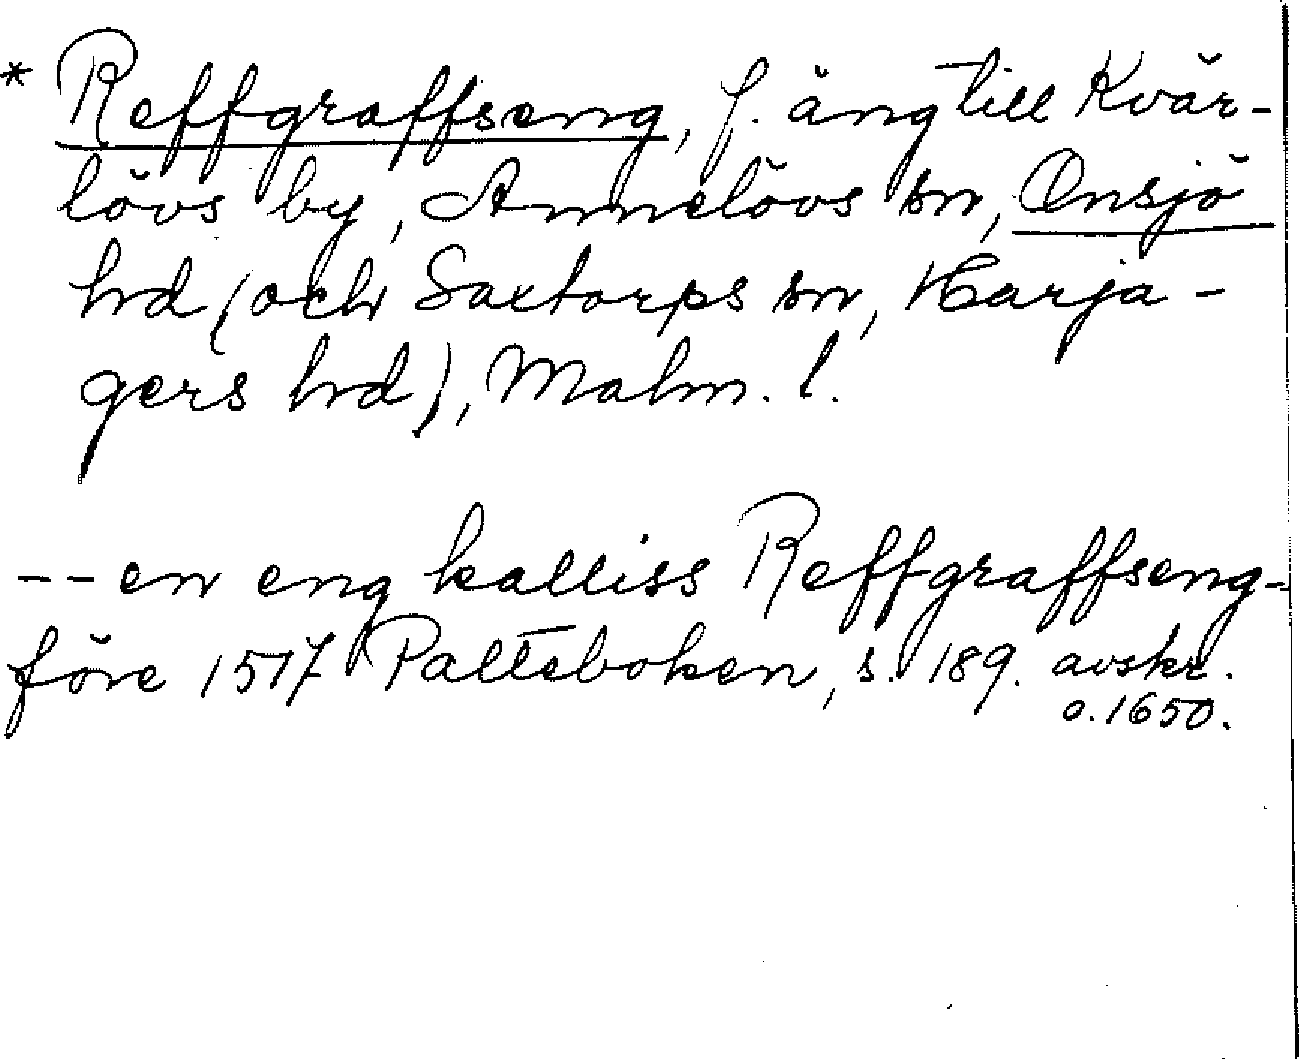 * Reffgraffseng, f. äng till Kvär-
lövs by, Annelövs sn, Onsjö
hd (och Saxtorps sn, Harja-
gers hd), Malm. l.
-- en eng kalliss Reffgraffseng-
före 1517 Palteboken, s. 189. avskr.
o. 1650.